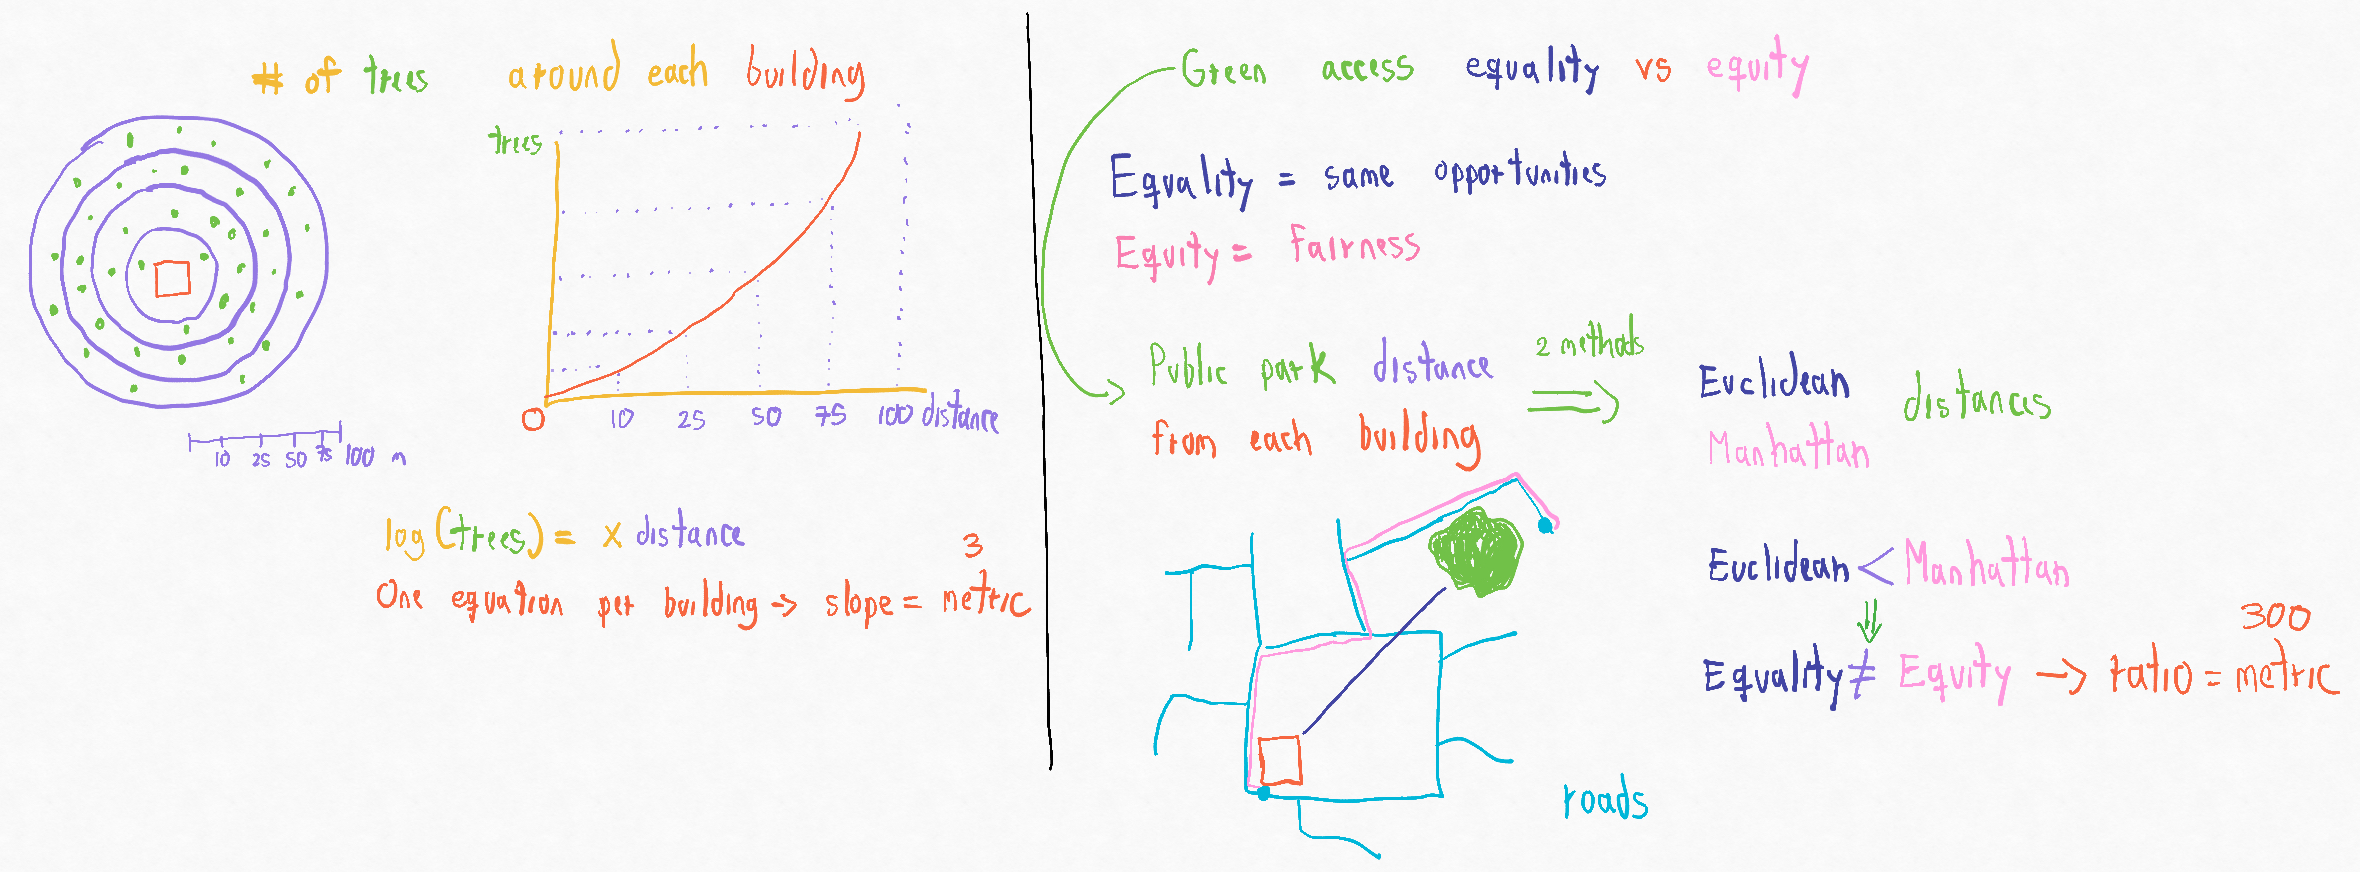 # of trees around each building
trees
0 10 25 50 75 100 distance
10 25 50 75 100 m
log(trees) = x distance
3
One equation per building → slope = metric
Green access equality vs equity
Equality = same opportunities
Equity = Fairness
Public park distance
from each building
2 methods
Euclidean
Manhattan
distances
Euclidean < Manhattan
300
Equality ≠ Equity → ratio = metric
roads